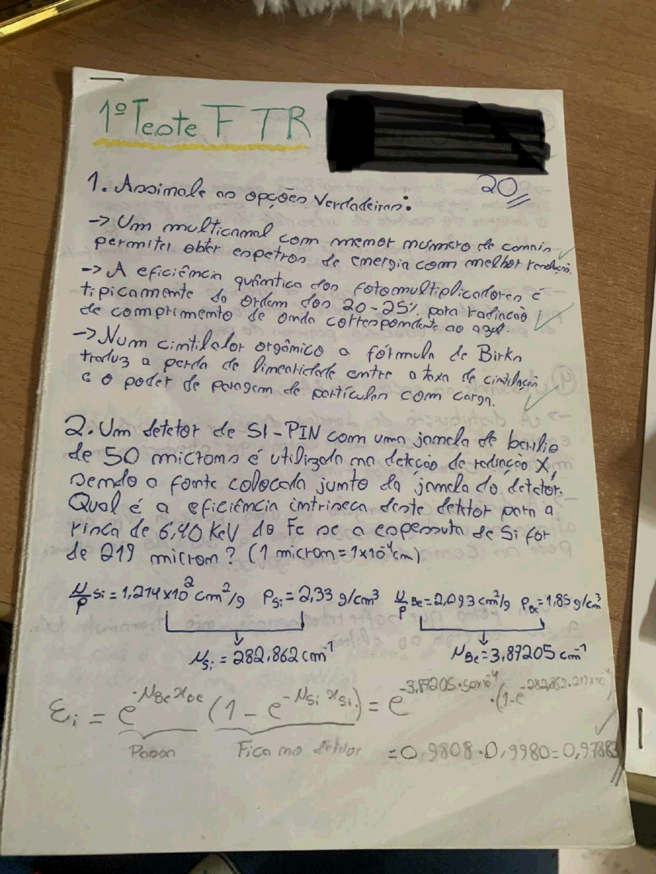 1º Teste FTR
20
1. Assinale as opções Verdadeiras:
-> Um multicanal com menor número de canais
permite obter espetros de energia com melhor resolução.
-> A eficiência quântica dos fotomultiplicadores é
tipicamente da ordem dos 20-25% para radiação
de comprimento de onda correspondente ao azul.
-> Num cintilador orgânico a fórmula de Birks
traduz a perda de linearidade entre a taxa de cintilação
e o poder de paragem de partículas com carga.
2. Um detetor de SI-PIN com uma janela de berílio
de 50 microns é utilizado na deteção de radiação X,
sendo a fonte colocada junto da janela do detetor.
Qual é a eficiência intrínseca deste detetor para a
risca de 6,40 KeV do Fe se a espessura de Si for
de 219 microm? (1 microm = 1x10⁻⁴cm)
μ/ρ Si = 1,214x10² cm²/g ρSi = 2,33 g/cm³ μ/ρ Be = 2,093 cm²/g ρBe = 1,85 g/cm³
μSi = 282,862 cm⁻¹ μBe = 3,87205 cm⁻¹
εi = e^-μBe xBe (1 - e^-μSi xSi) = e^-3,87205·50x10⁻⁴ · (1-e^-282,862·219x10⁻⁴)
Passa Fica no detetor = 0,9808 · 0,9980 = 0,97883